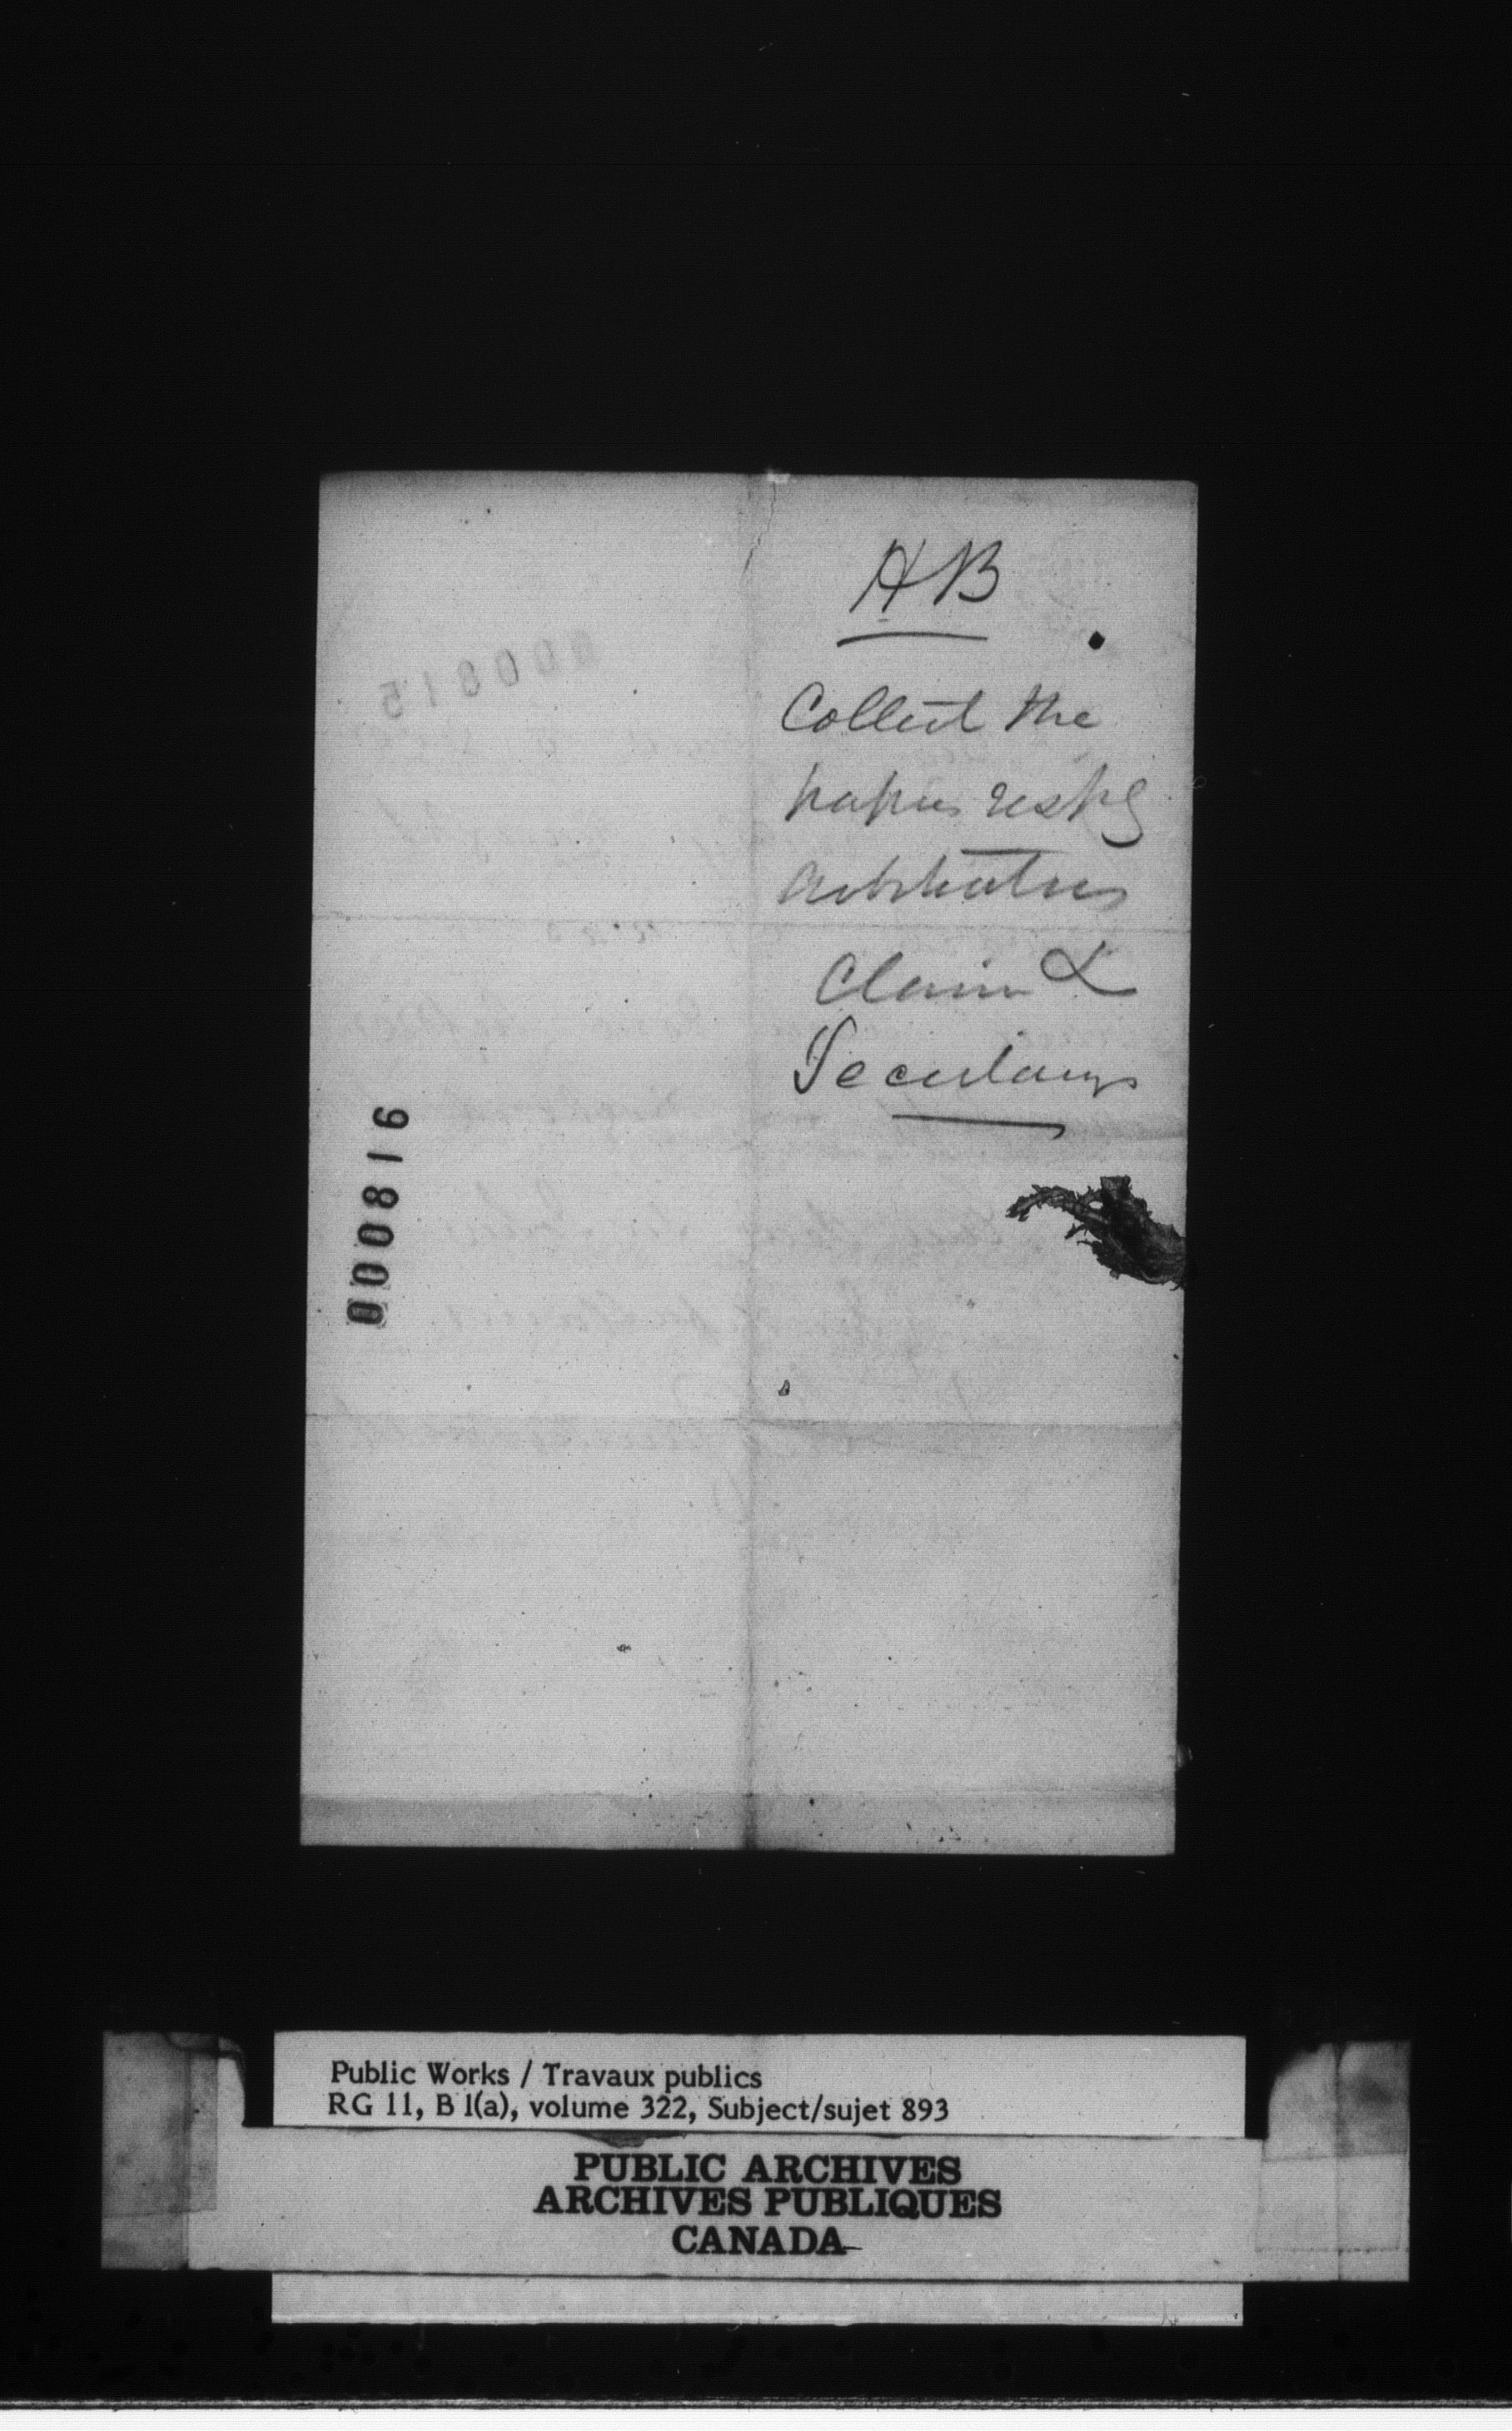 HB
Collect the
papers respg
arbitration
Claim &
000816
000815
Public Works / Travaux publics
RG 11, B 1(a), volume 322, Subject/sujet 893
PUBLIC ARCHIVES
ARCHIVES PUBLIQUES
CANADA